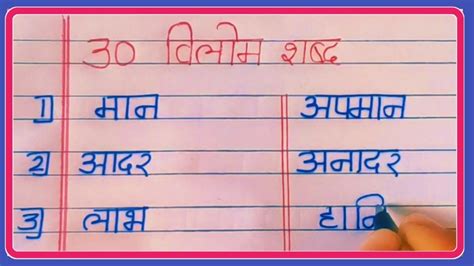 30 विलोम शब्द
1) मान अपमान
2) आदर अनादर
3) लाभ हानि